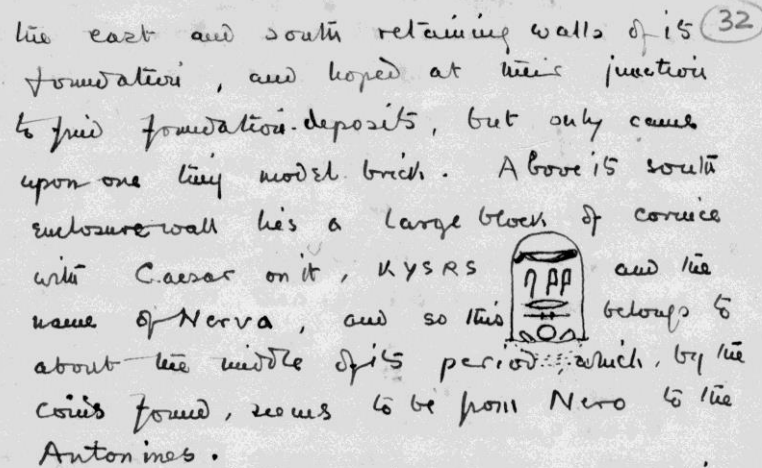 the east and south retaining walls of its 32
foundation, and hoped at their junction
to find foundation-deposits, but only came
upon one tiny model brick. Above its south
enclosure wall lies a large block of cornice
with Caesar on it, KYSRS and the
name of Nerva, and so this belongs to
about the middle of its period, which, by the
coins found, seems to be from Nero to the
Antonines.